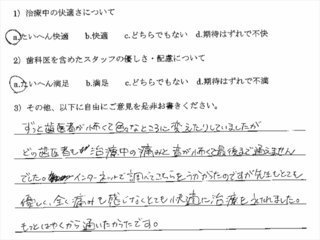 1）治療中の快適さについて
a.たいへん快適　b.快適　c.どちらでもない　d.期待はずれで不快
2）歯科医を含めたスタッフの優しさ・配慮について
a.たいへん満足　b.満足　c.どちらでもない　d.期待はずれで不満
3）その他、以下に自由にご意見を是非お書きください。
ずっと歯医者が怖くて色々なところに変えたりしていましたが
どの歯医者も治療中の痛みと音が怖くて最後まで通えません
でした。インターネットで調べてこちらをうかがったのですが先生もとても
優しく、全く痛みも感じなくとても快適に治療をえれました。
もっとはやくから通いたかったです。